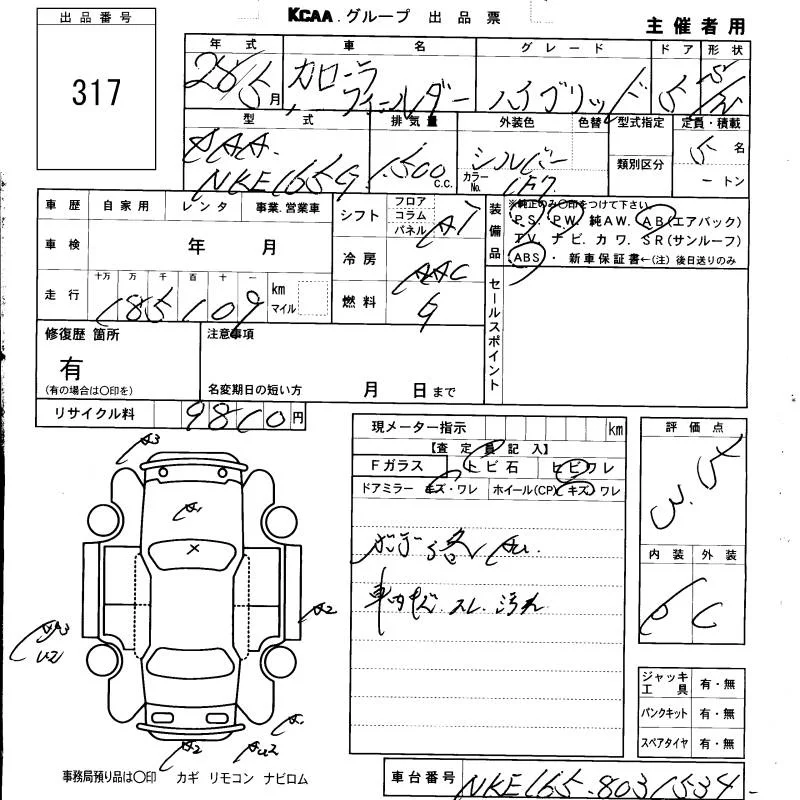 KCAA.グループ 出品票
主催者用
出品番号
317
年式 車名 グレード ドア 形状
28/5月 カローラフィールダー ハイブリッド 5
型式 排気量 外装色 色替 型式指定 定員・積載
DAA-
NKE165G 1.500 c.c. シルバー カラーNo. 1F7 類別区分 5名
トン
車歴 自家用 レンタ 事業.営業車
シフト フロア コラム パネル AT
装備品 ※純正のみ〇印をつけて下さい。
PS. PW. 純AW. AB(エアバック)
TV. ナビ. カワ. SR(サンルーフ)
ABS・新車保証書←(注)後日送りのみ
車検 年 月
冷房 AAC
走行 十万 万 千 百 十 一
185109 km マイル
燃料 G
セールスポイント
修復歴 箇所
有
(有の場合は〇印を)
注意事項
名変期日の短い方 月 日まで
リサイクル料 9810円
現メーター指示 km
【査定員記入】
Fガラス トビ石 ヒビワレ
ドアミラー キズ・ワレ ホイール(CP) キズ ワレ
車内キズ.スレ.汚れ
評価点
3.5
内装 外装
C
A3
A1
X
A2
A3
U2
A1
A2
AU2
事務局預り品は〇印 カギ リモコン ナビロム
ジャッキ工具 有・無
パンクキット 有・無
スペアタイヤ 有・無
車台番号 NKE165-8031534